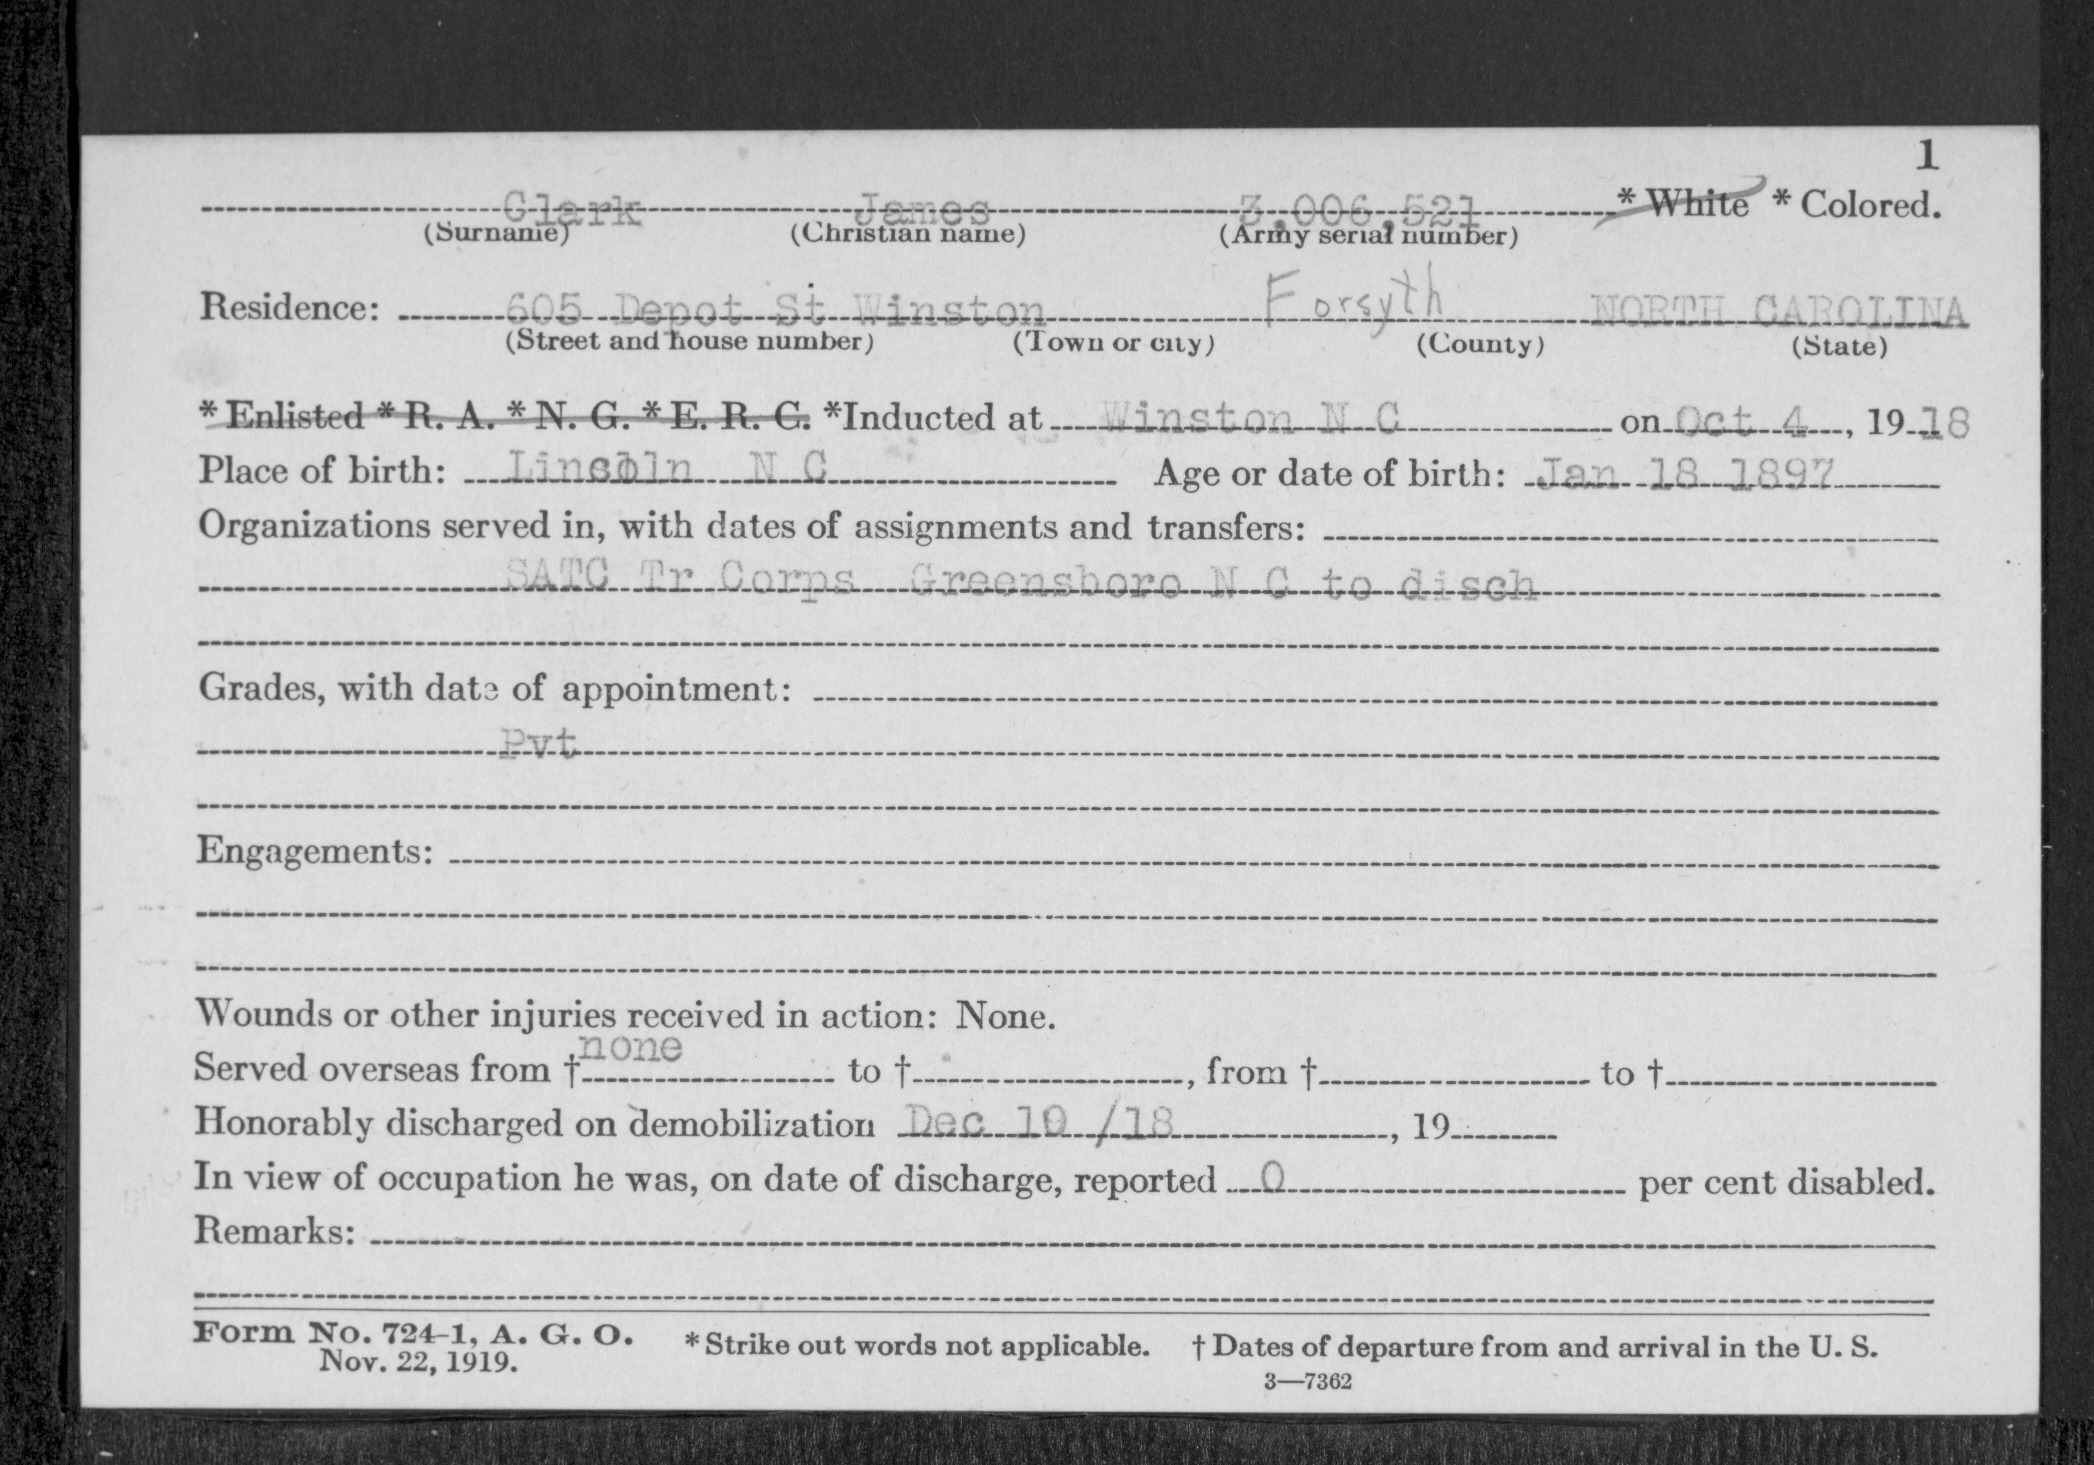 1
Clark James 3,006,521 * White * Colored.
(Surname) (Christian name) (Army serial number)
Residence: 605 Depot St Winston Forsyth NORTH CAROLINA
(Street and house number) (Town or city) (County) (State)
* Enlisted * R. A. * N. G. * E. R. C. *Inducted at Winston N C on Oct 4, 19 18
Place of birth: Lincoln N C Age or date of birth: Jan 18 1897
Organizations served in, with dates of assignments and transfers:
SATC Tr Corps Greensboro N C to disch
Grades, with date of appointment:
Pvt
Engagements:
Wounds or other injuries received in action: None.
Served overseas from † none to †, from † to †
Honorably discharged on demobilization Dec 10 /18, 19
In view of occupation he was, on date of discharge, reported 0 per cent disabled.
Remarks:
Form No. 724-1, A. G. O. * Strike out words not applicable. † Dates of departure from and arrival in the U. S.
Nov. 22, 1919.
3—7362